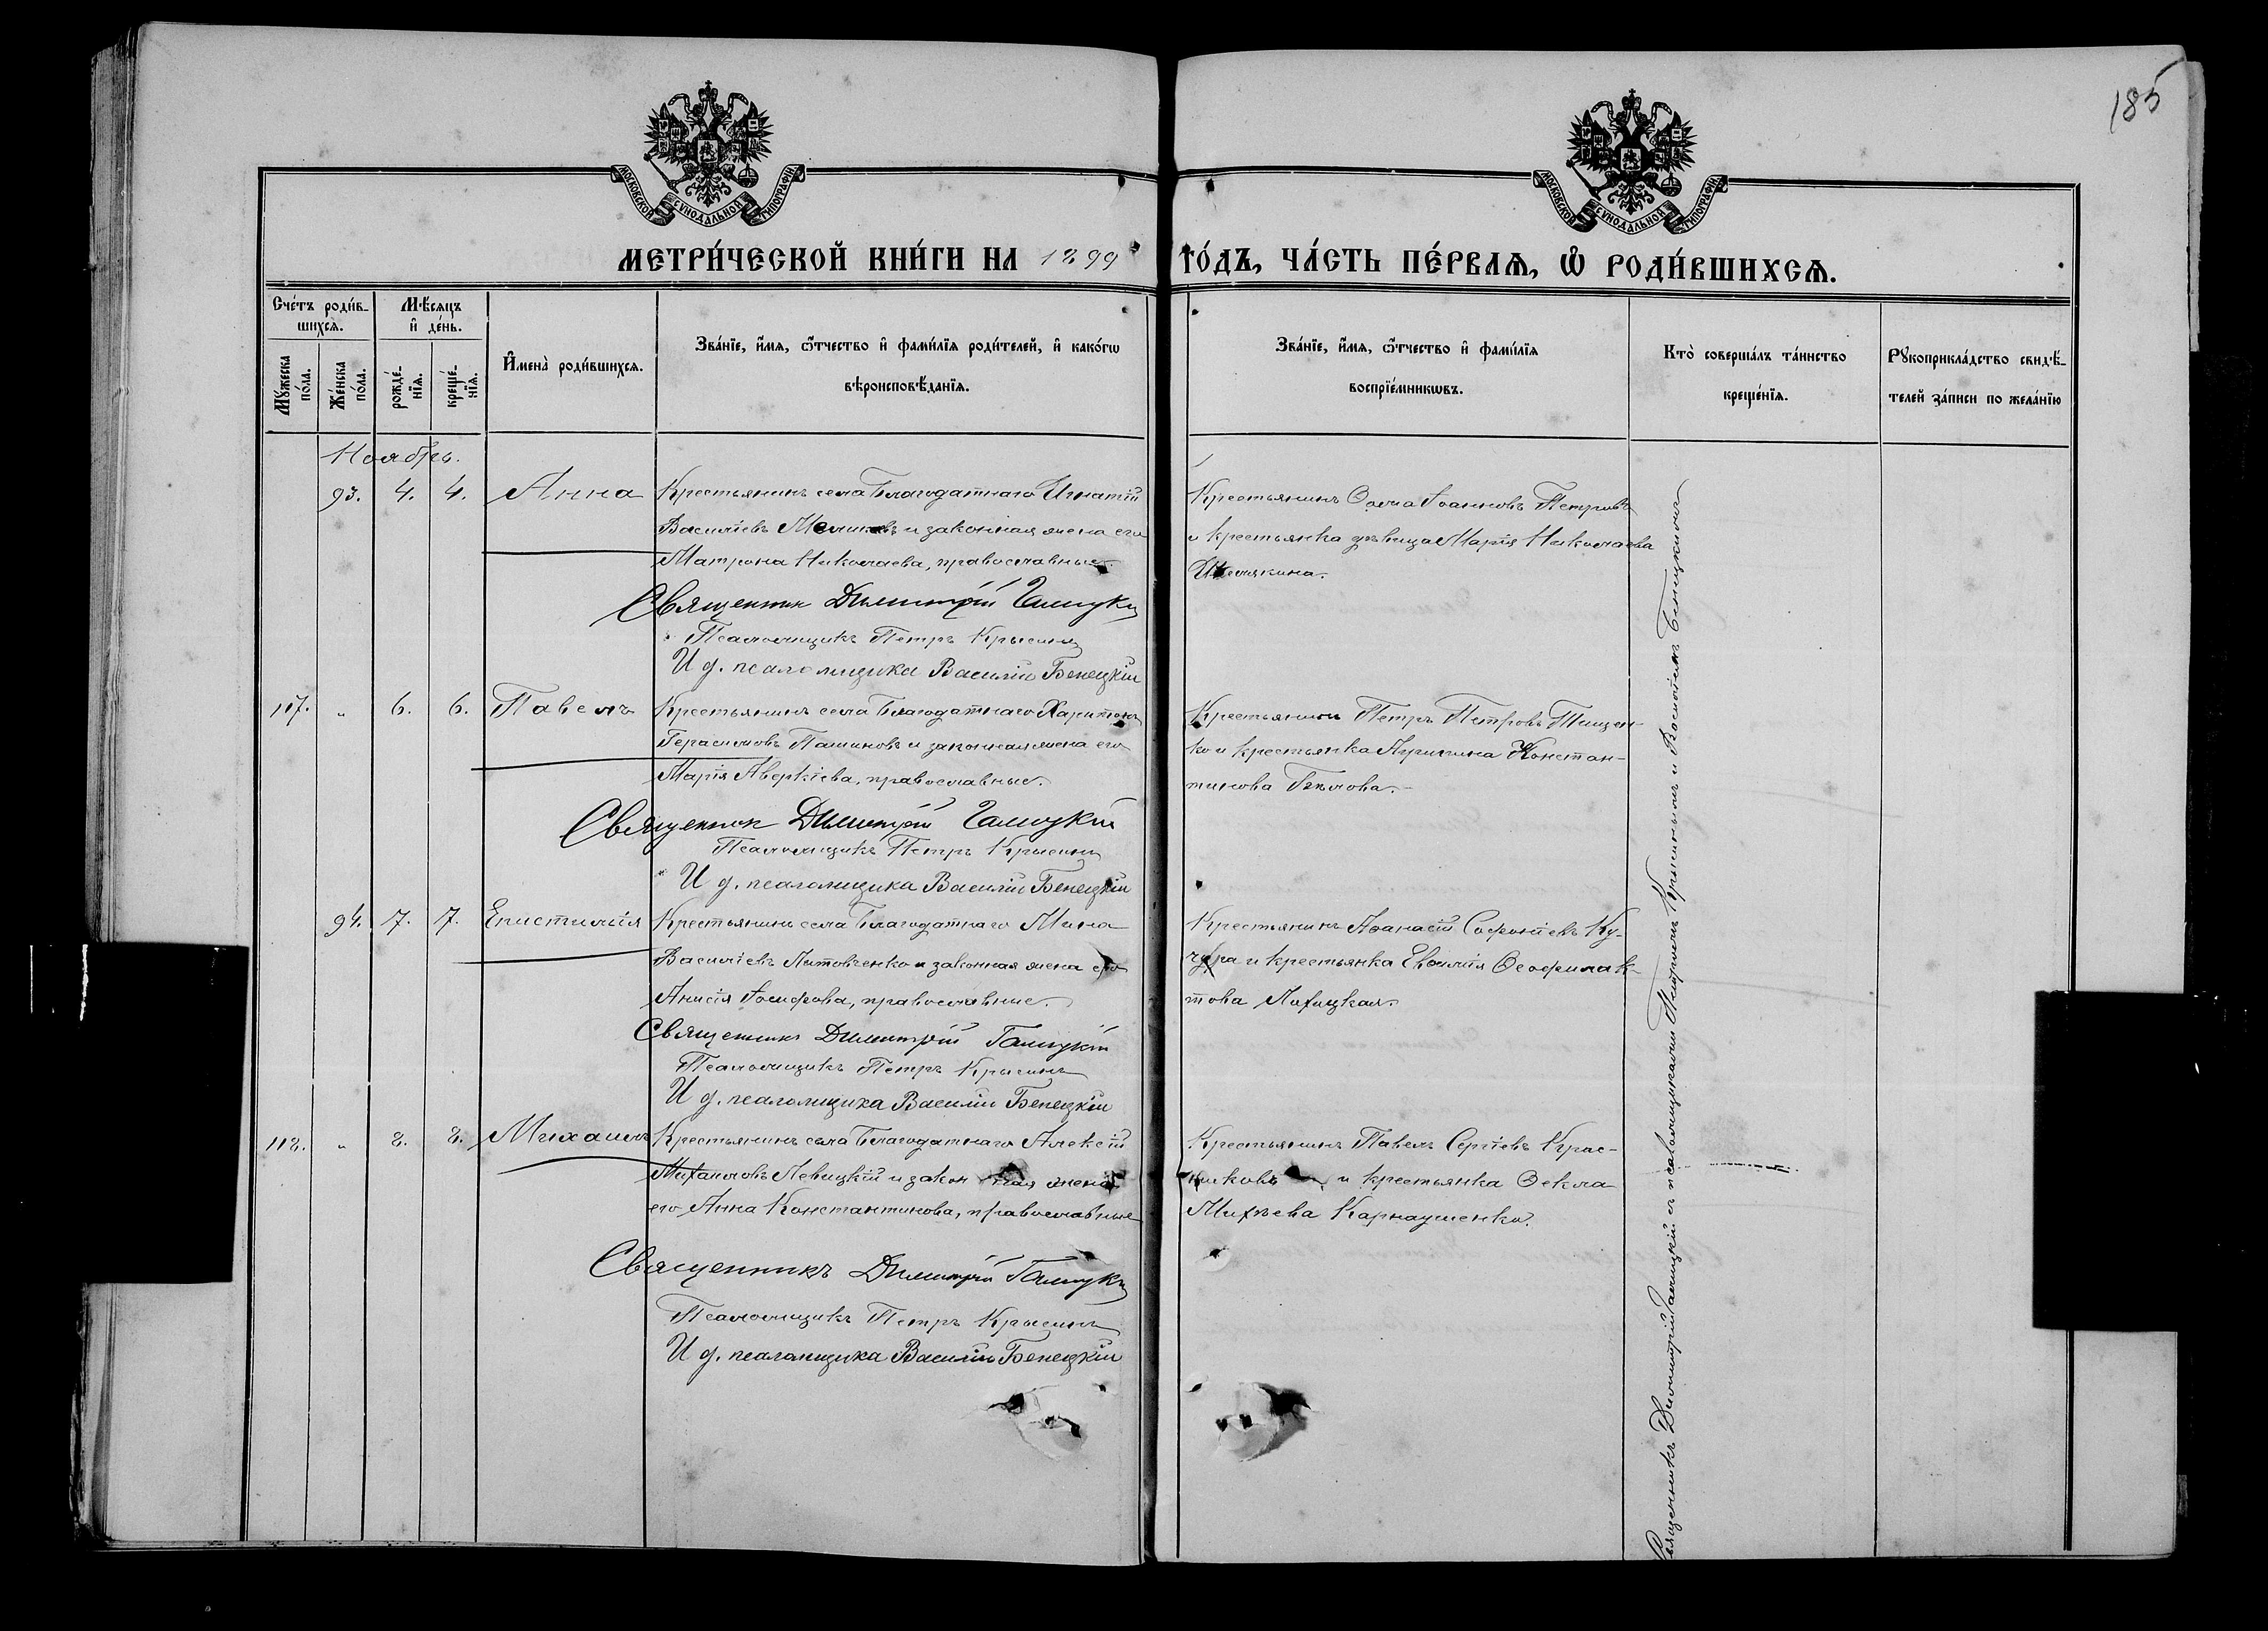 185
МОСКОВСКОЙ СѴНОДАЛЬНОЙ ТИПОГРАФІИ
МОСКОВСКОЙ СѴНОДАЛЬНОЙ ТИПОГРАФІИ
МЕТРИ́ЧЕСКОЙ КНИ́ГИ НА 1899 ГО́ДЪ, ЧА́СТЬ ПЕ́РВАЯ, Ѽ РОДИ́ВШИХСѦ.
Сче́тъ роди́в-
шихсѧ.
Мꙋ́жеска
по́ла.
Же́нска
по́ла.
Мѣ́сѧцъ
и҆ де́нь.
рожде́-
нїѧ.
креще́-
нїѧ.
И҆мена̀ роди́вшихсѧ.
Зва́нїе, и҆́мѧ, ѻ҆́тчество и҆ фами́лїѧ роди́телей, и҆ како́гѡ
вѣроисповѣ́данїѧ.
Зва́нїе, и҆́мѧ, ѻ҆́тчество и҆ фами́лїѧ
воспрїе́мникѡвъ.
Кто̀ соверша́лъ та́инство
креще́нїѧ.
Рꙋкоприкла́дство свидѣ́-
телей за́писи по жела́нїю
Ноябрь.
93. 4. 4. Анна
Крестьянинъ села Благодатнаго Игнатій
Василіевъ и законная жена его
Матрона Николаева, православные.
Священник Димитрій Галицкій
Псаломщикъ Петръ Крысинъ
И д. псаломщика Василій Бенецкій
Крестьянинъ Ѳома Іоанновъ Петровъ
и крестьянка дѣвица Марія Николаева
Шелякина.
117. " 6. 6. Павелъ
Крестьянинъ села Благодатнаго Харитонъ
Герасимовъ Пашиновъ и законная жена его
Марія Аверкіева, православные.
Священник Димитрій Галицкій
Псаломщикъ Петръ Крысинъ
И д. псаломщика Василій Бенецкій
Крестьянинъ Петръ Петровъ Тищен-
ко и крестьянка Агрипина Констан-
тинова Бѣлова.
94. 7. 7. Епистимія
Крестьянинъ села Благодатнаго Мина
Василіевъ Литовченко и законная жена его
Анисія Іосифова, православные.
Священникъ Димитрій Галицкій
Псаломщикъ Петръ Крысинъ
И д. псаломщика Василій Бенецкій
Крестьянинъ Аѳанасій Софоніевъ Ку-
чера и крестьянка Евѳимія Ѳеофилак-
това Лихицкая.
118. " 8. 8. Михаилъ
Крестьянинъ села Благодатнаго Алексій
Михаиловъ Левицкій и законная жена
его Анна Константинова, православные
Священникъ Димитрій Галицкій
Псаломщикъ Петръ Крысинъ
И д. псаломщика Василій Бенецкій
Крестьянинъ Павелъ Сергіевъ Крас-
никовъ и крестьянка Ѳекла
Михѣева Карнаушенко.
Священникъ Димитрій Галицкій съ псаломщиками Петромъ Крысинымъ и Василіемъ Бенецкимъ